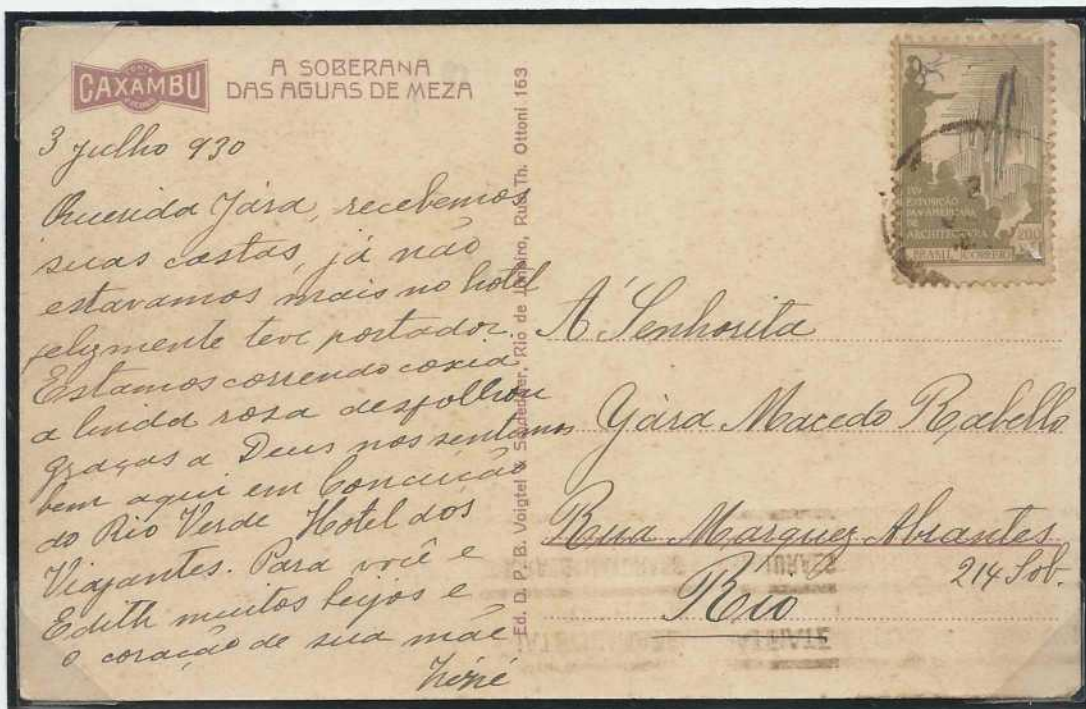 CAXAMBU
A SOBERANA
DAS AGUAS DE MEZA
3 julho 930
Querida Yára, recebemos
suas cartas, já não
estavamos mais no hotel
felizmente teve portador.
Estamos correndo coxia
a linda rosa desfolhou
graças a Deus nos sentimos
bem aqui em Conceicão
do Rio Verde Hotel dos
Viajantes. Para você e
Edith muitos beijos e
o coração de sua mãe
Ed. D. P. B. Voigtel & Rio de Janeiro, Rua Th. Ottoni 163
IV
EXPOSIÇÃO
PAN-AMERICANA
DE
ARCHITECTURA
200
BRASIL CORREIO
Á Senhorita
Yára Macedo Rabello
Rua Marquez Abrantes
214 Sob.
Rio